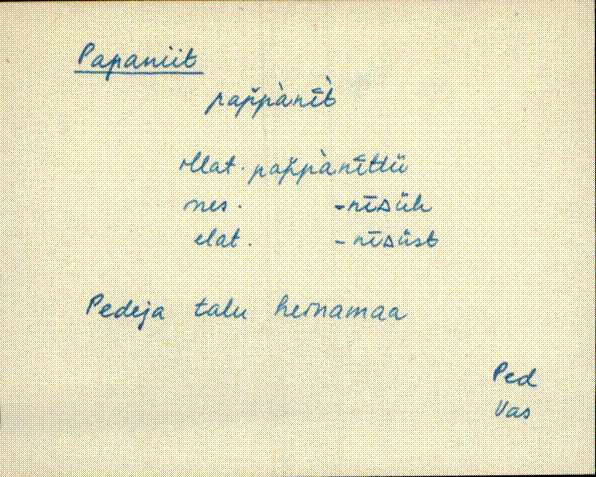 Papaniit
pap̆pànīt̀
illat. pap̆pànīttü
ines. -nīsüh
elat. -nīsüst
Pedeja talu heinamaa
Ped
Vas